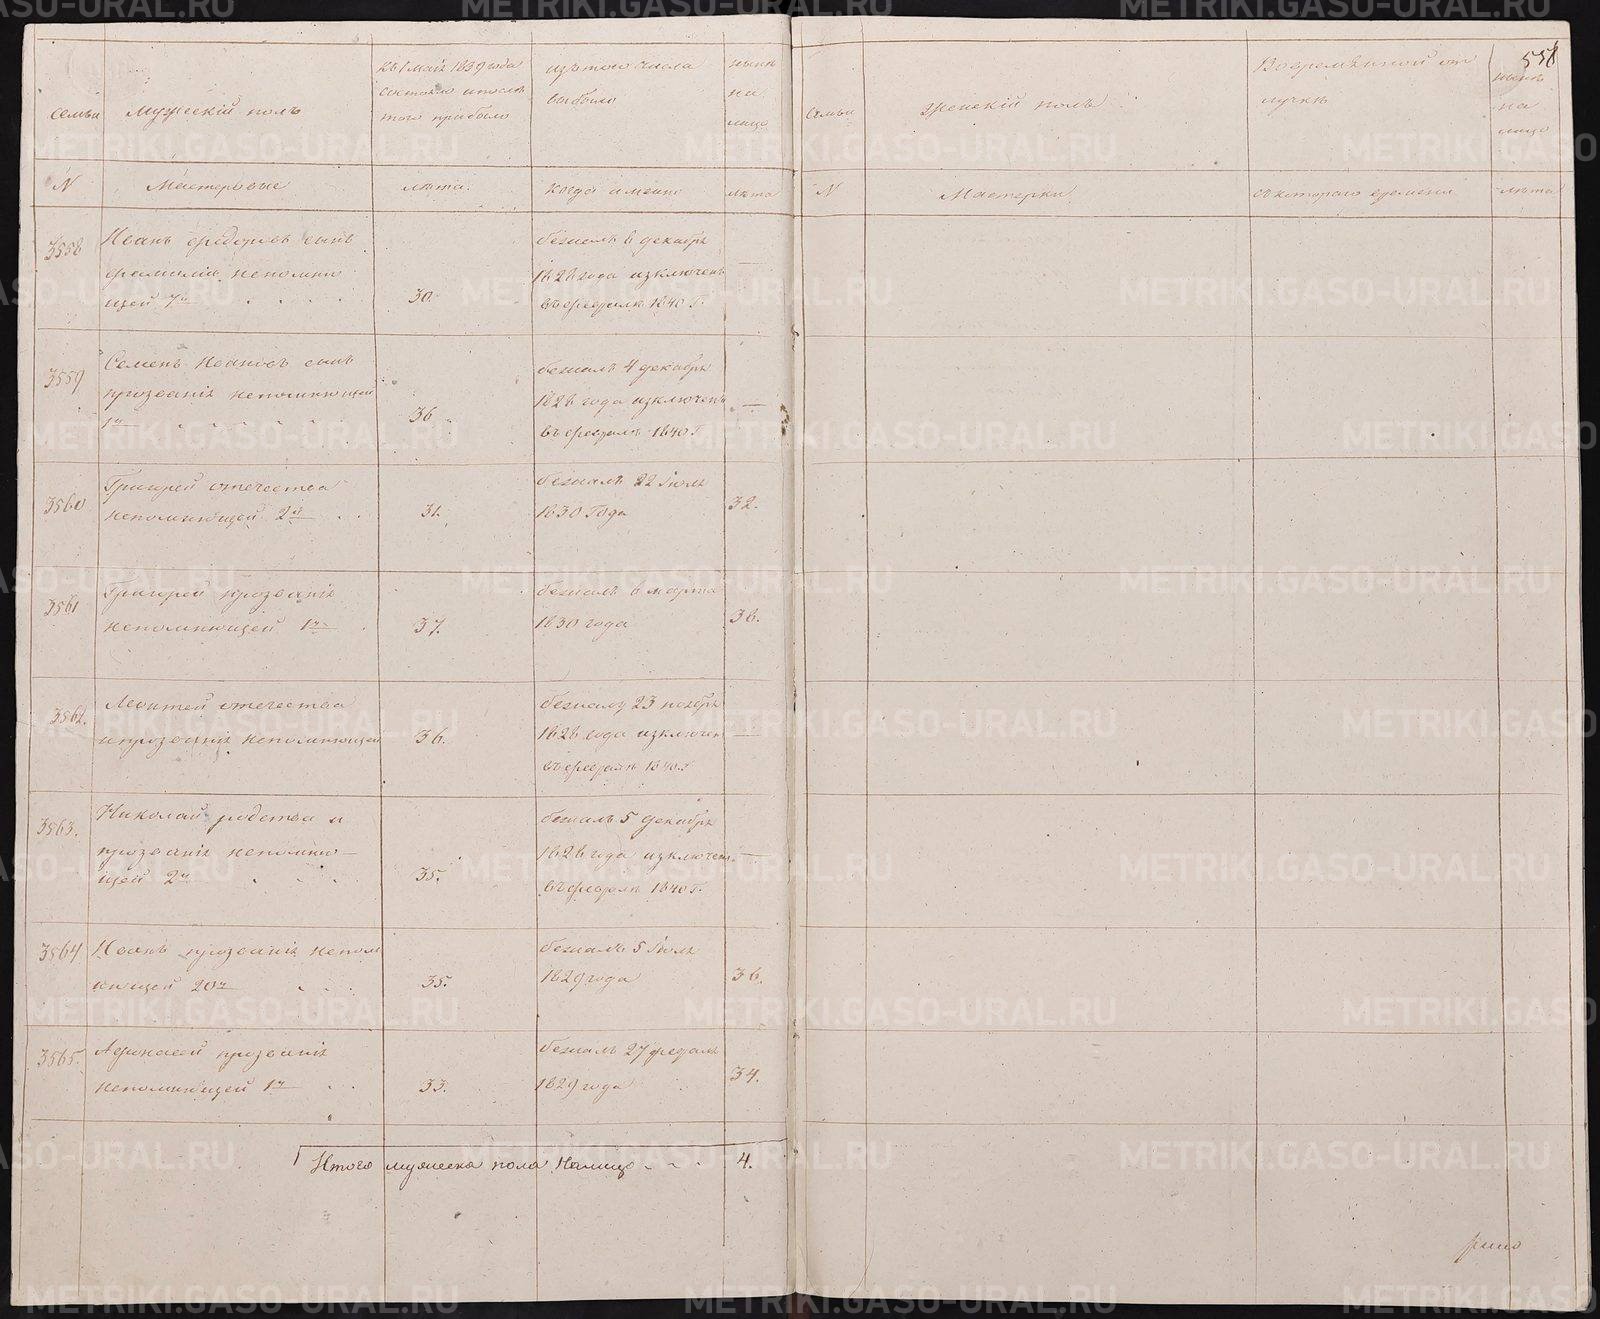 558
семьи
Мужескій полъ
Къ 1 Маія 1839 года
состояло и послѣ
того прибыло
изъ того числа
выбыло
нынѣ
на
лицо
Семьи
Женскій полъ
Во временной от
лучкѣ
нынѣ
на
лицо
N
Мастеровые
лѣта.
когда и менно
лѣта
N
Мастерки
съ котораго времени
лѣта
3558
Иванъ Федоровъ сынъ
фамиліи непомню
щей 7й
30.
бежалъ 6 декабря
1828 года изключенъ
въ февралѣ 1840 Г.
—
3559
Семенъ Ивановъ сынъ
прозванія непомнющей
1й
36
бежалъ 4 декабря
1828 года изключенъ
въ февралѣ 1840 Г.
—
3560
Григорей отечества
непомнющей 2й
31.
бежалъ 22 Іюля
1830 Года
32.
3561
Григорей прозванія
непомнющей 1й
37.
бежалъ 6 марта
1830 года
38.
3562.
Леонтей отечества
и прозванія непомнющей
36.
бежалъ 23 ноября
1828 года изключен
въ февралѣ 1840 Г.
—
3563.
Николай родства и
прозванія непомню—
щей 2й
35.
бежалъ 5 декабря
1828 года изключенъ
въ февралѣ 1840 Г.
—
3564
Иванъ прозванія непом
нющей 20й
35.
бежалъ 5 Іюля
1829 года
36.
3565.
Афонасей прозванія
непомнющей 1й
33.
бежалъ 27 февраля
1829 года
34.
Итого мужеска пола налицо
4.
METRIKI.GASO-URAL.RU